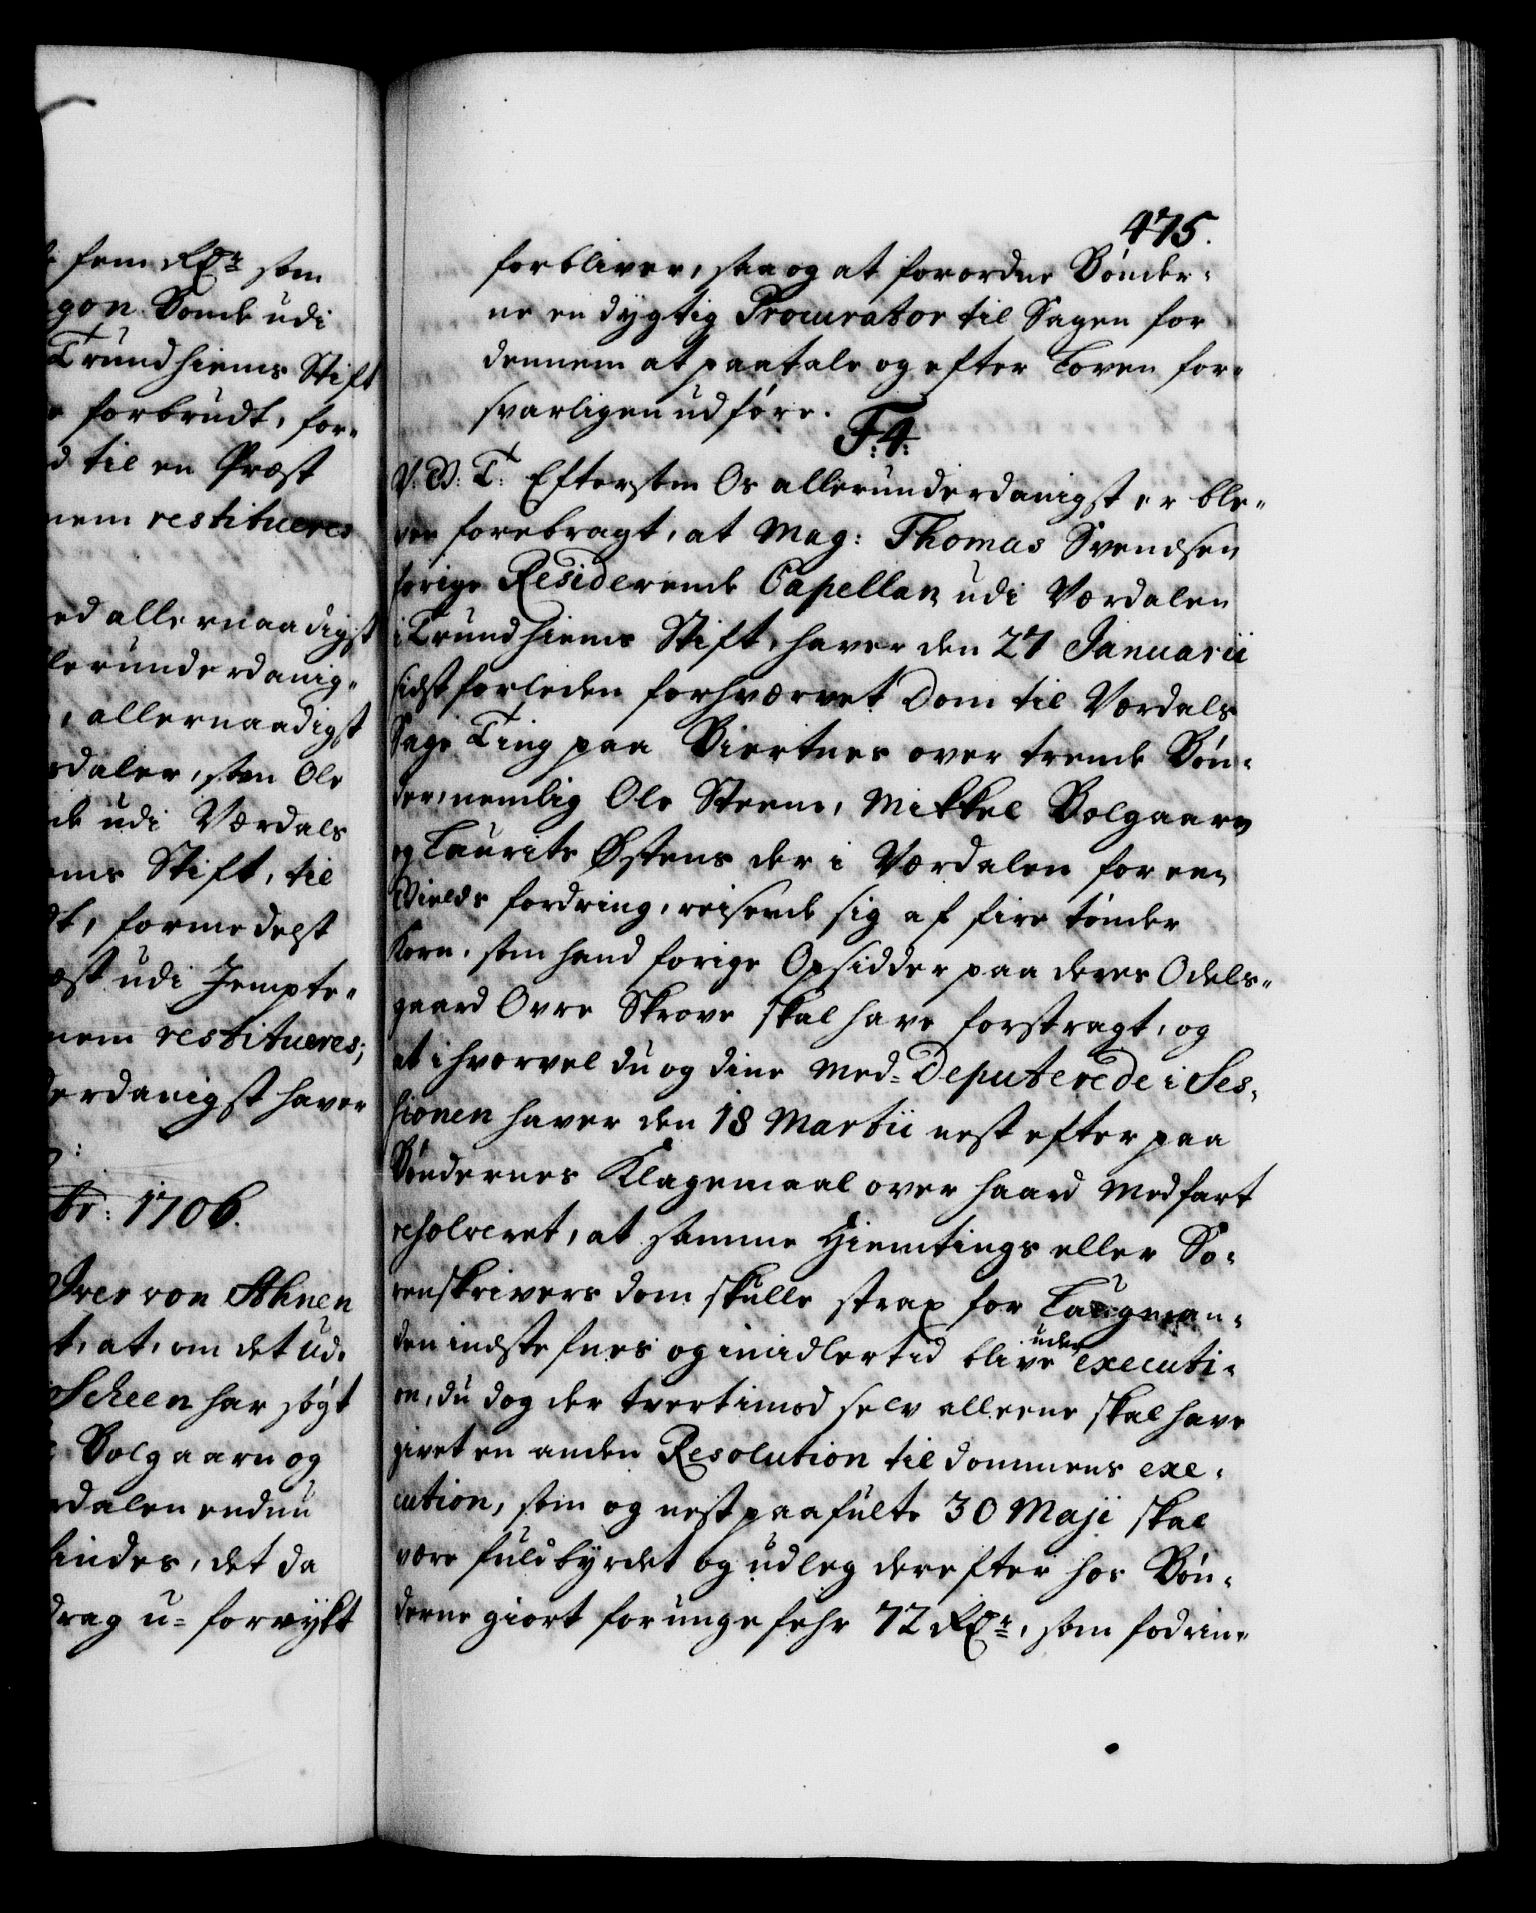 fem Rdr som
gon Bonde udi
Trundhiems Stift
forbrudt, for-
til en Præst
nem restitueres
ed allernaadigst
lerunderdanig-
, allernaadigst
daler, som Ole
udi Værdals
ems Stift, til
formedelst
udi Jempte-
nem restitueres;
erdanigst haver
br: 1706.
Iver von Ahnen
t, at, om det ud-
Scheen har søgt
Bolgaarn og
dalen endnu
findes, det da
drag u- forvykt
475.
forbliver, saa og at forordne Bønder-
ne en dygtig Procurator til Sagen for
dennem at paatale og efter Loven for-
svarligen udføre.
F: 4:
V. G: T: Eftersom Os allerunderdanigst er ble-
ven forebragt, at Mag: Thomas Svendsen
forige Residerende Capellan udi Værdalen
i Trundhiems Stift, haver den 27 Januarii
sidstforleden forhværvet Dom til Værdals
Sage Ting paa Biertnes over trende Bøn-
der, nemlig Ole Steene, Mikkel Bolgaarn
og Laurits Østens der i Værdalen for een
Gields fordring, reisende sig af fire tønder
Korn, som hand forige Opsidder paa deres Odels-
gaard Ovre Skrove skal have forstragt, og
at ihvorvel du og dine Med-Deputerede i Ses-
sionen haver den 18 Martii nest efter paa
Bøndernes Klagemaal over haard Medfart
resolveret, at samme Hiemtings eller So-
renskrivers dom skulle strax for Laugman-
den indstefnes og imidlertid blive uden executi-
on, du dog der tvertimod selv alleene skal have
givet en anden Resolution til dommens exe-
cution, som og nestpaafulte 30 Maji skal
være fuldbyrdet og udleg derefter hos Bøn-
derne giort for ungefehr 72 Rdr, som fodrin-